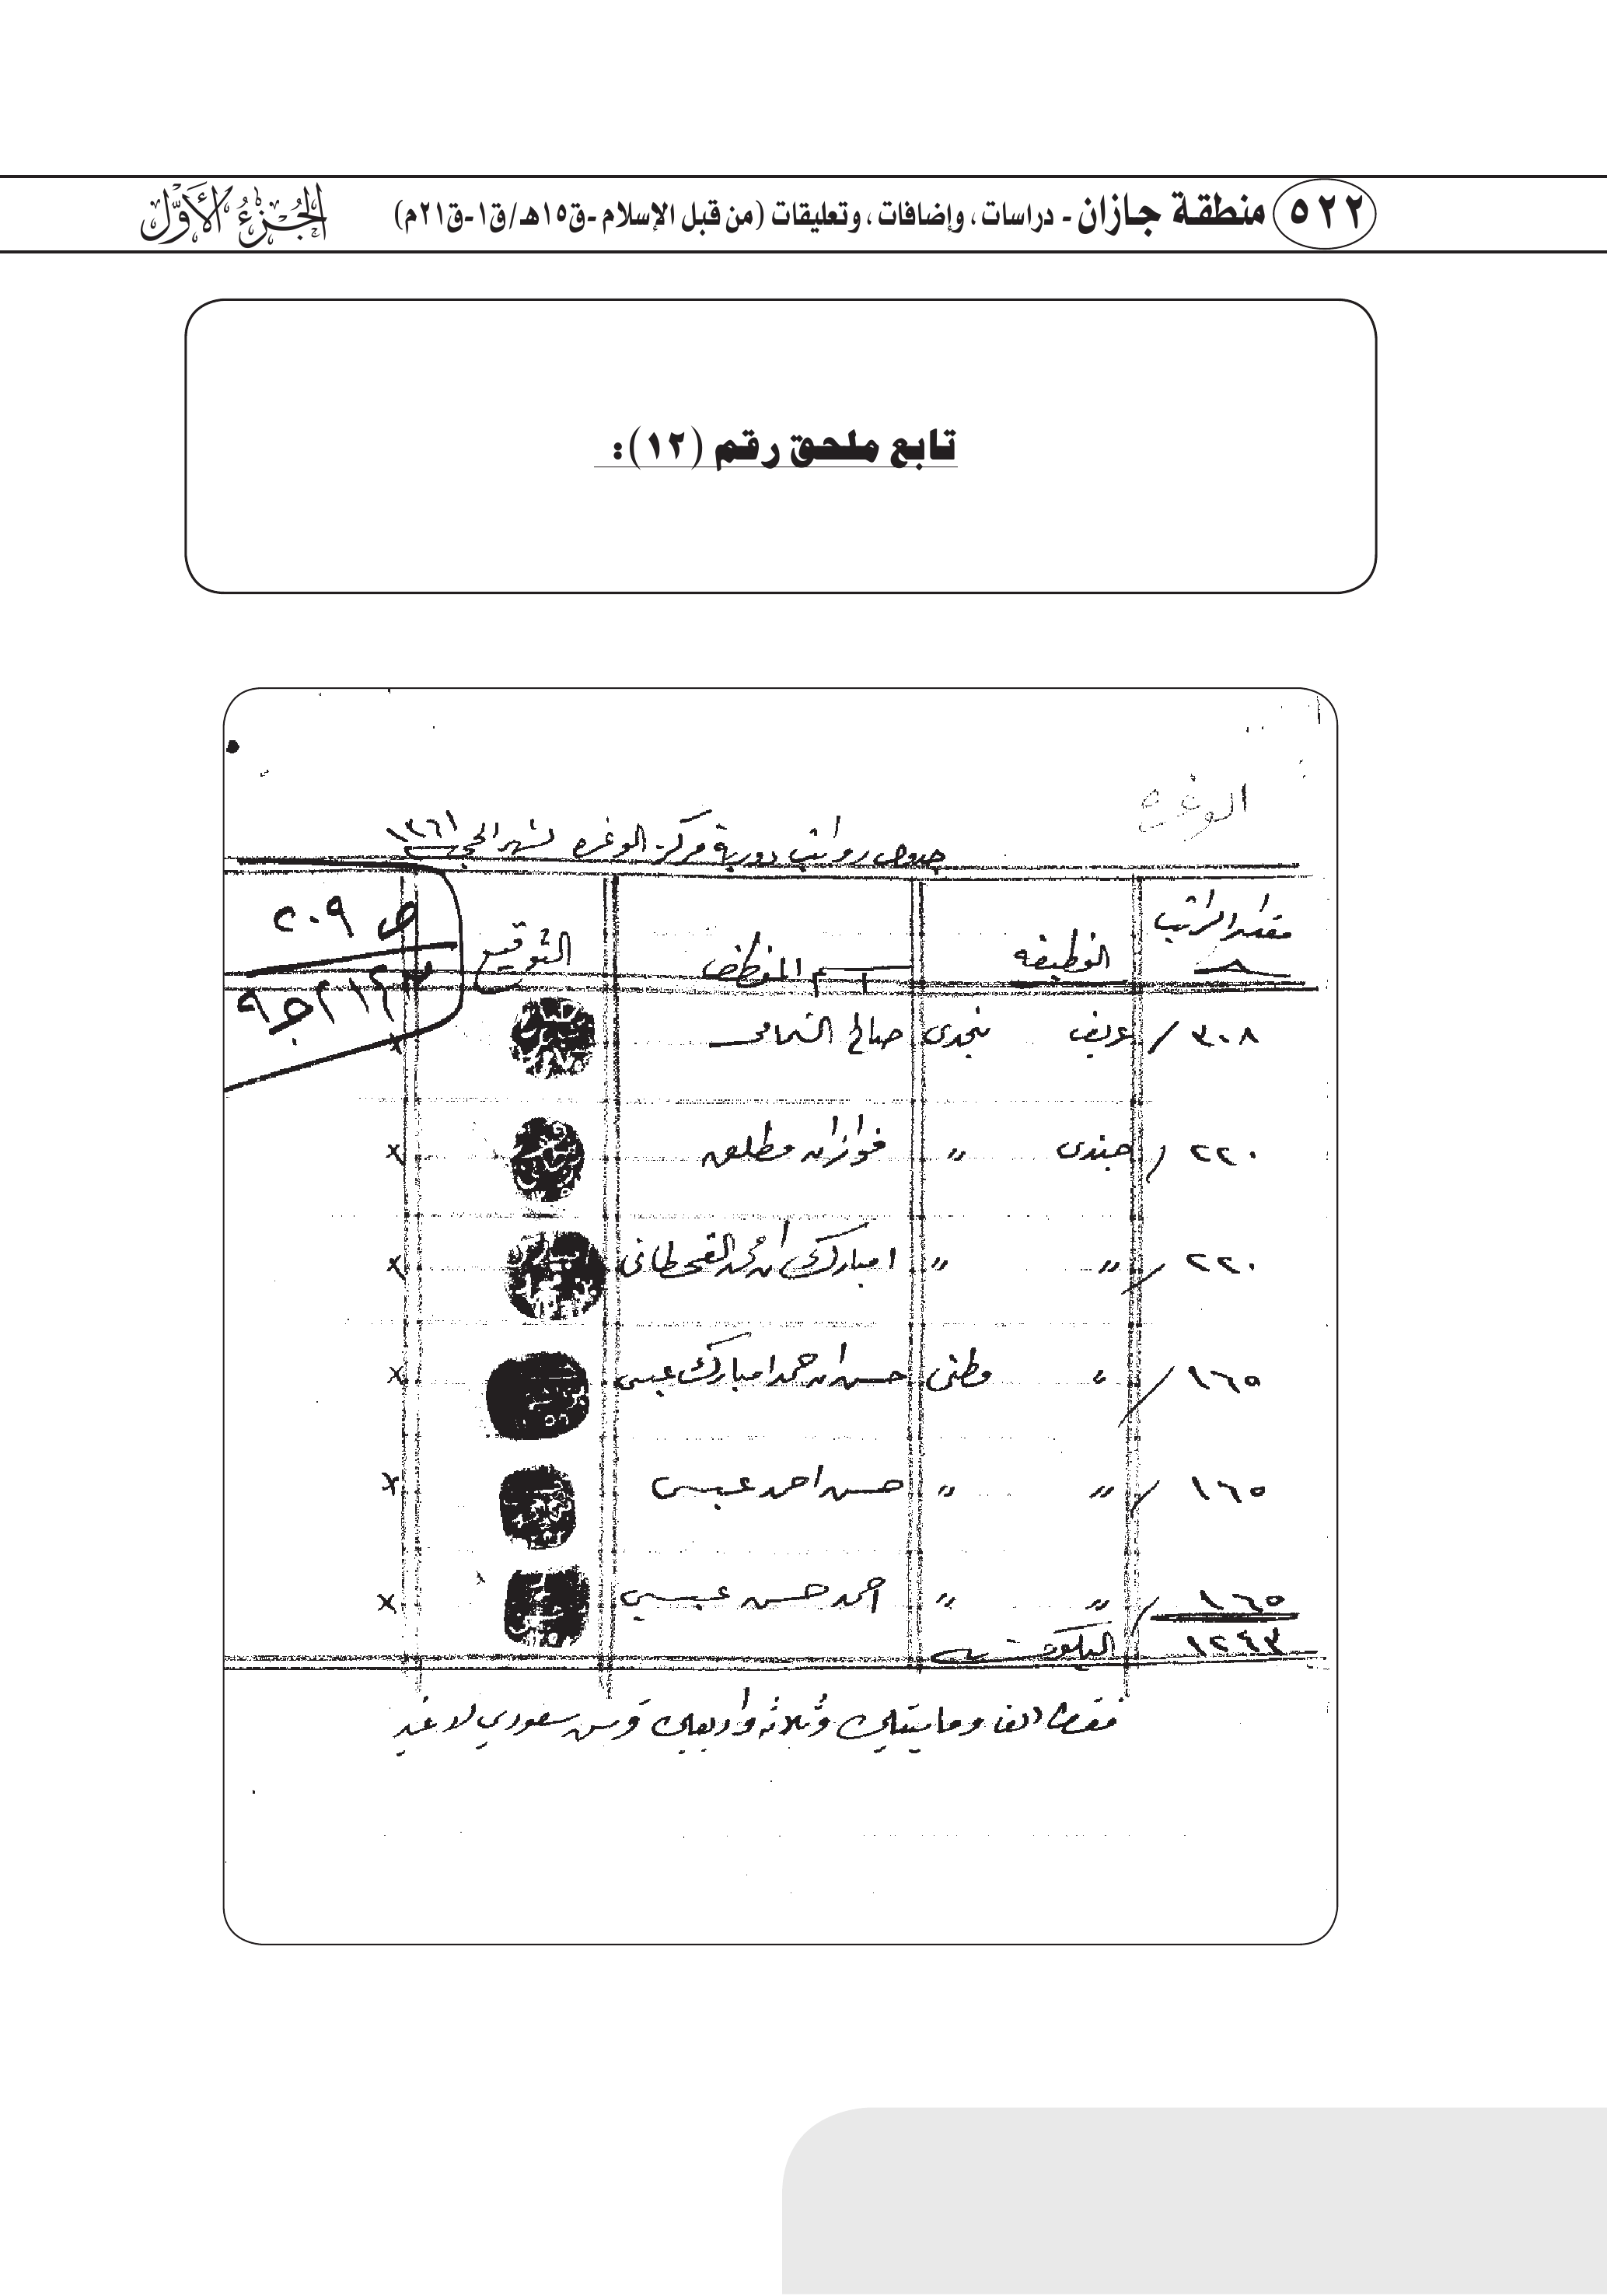 ٥٢٢ منطقة جازان - دراسات، وإضافات، وتعليقات (من قبل الإسلام -ق١٥هـ/ق١-ق٢١م) الجزء الأول
تابع ملحق رقم (١٢):
الوغره
جدول رواتب دورية مركز الوغره لشهر الحجه ١٣٦١
مقدار الراتب الوظيفه اسم الموظف التوقيع
ص ٢٠٩
ج٩
٣٠٨ / عريف نجدى صالح الشامى
٢٢٠ / جندى " فواز ابن مطلق x
٢٢٠ / " " امبارك ابن محمد القحطانى x
١٦٥ / " وطنى حسن ابن حمد امبارك عبسى x
١٦٥ / " " حسن احمد عبسى x
١٦٥ / " " احمد حسن عبسي x
١٢٤٣
فقط الف ومايتين وثلاثه واربعين قرش سعودي لا غير